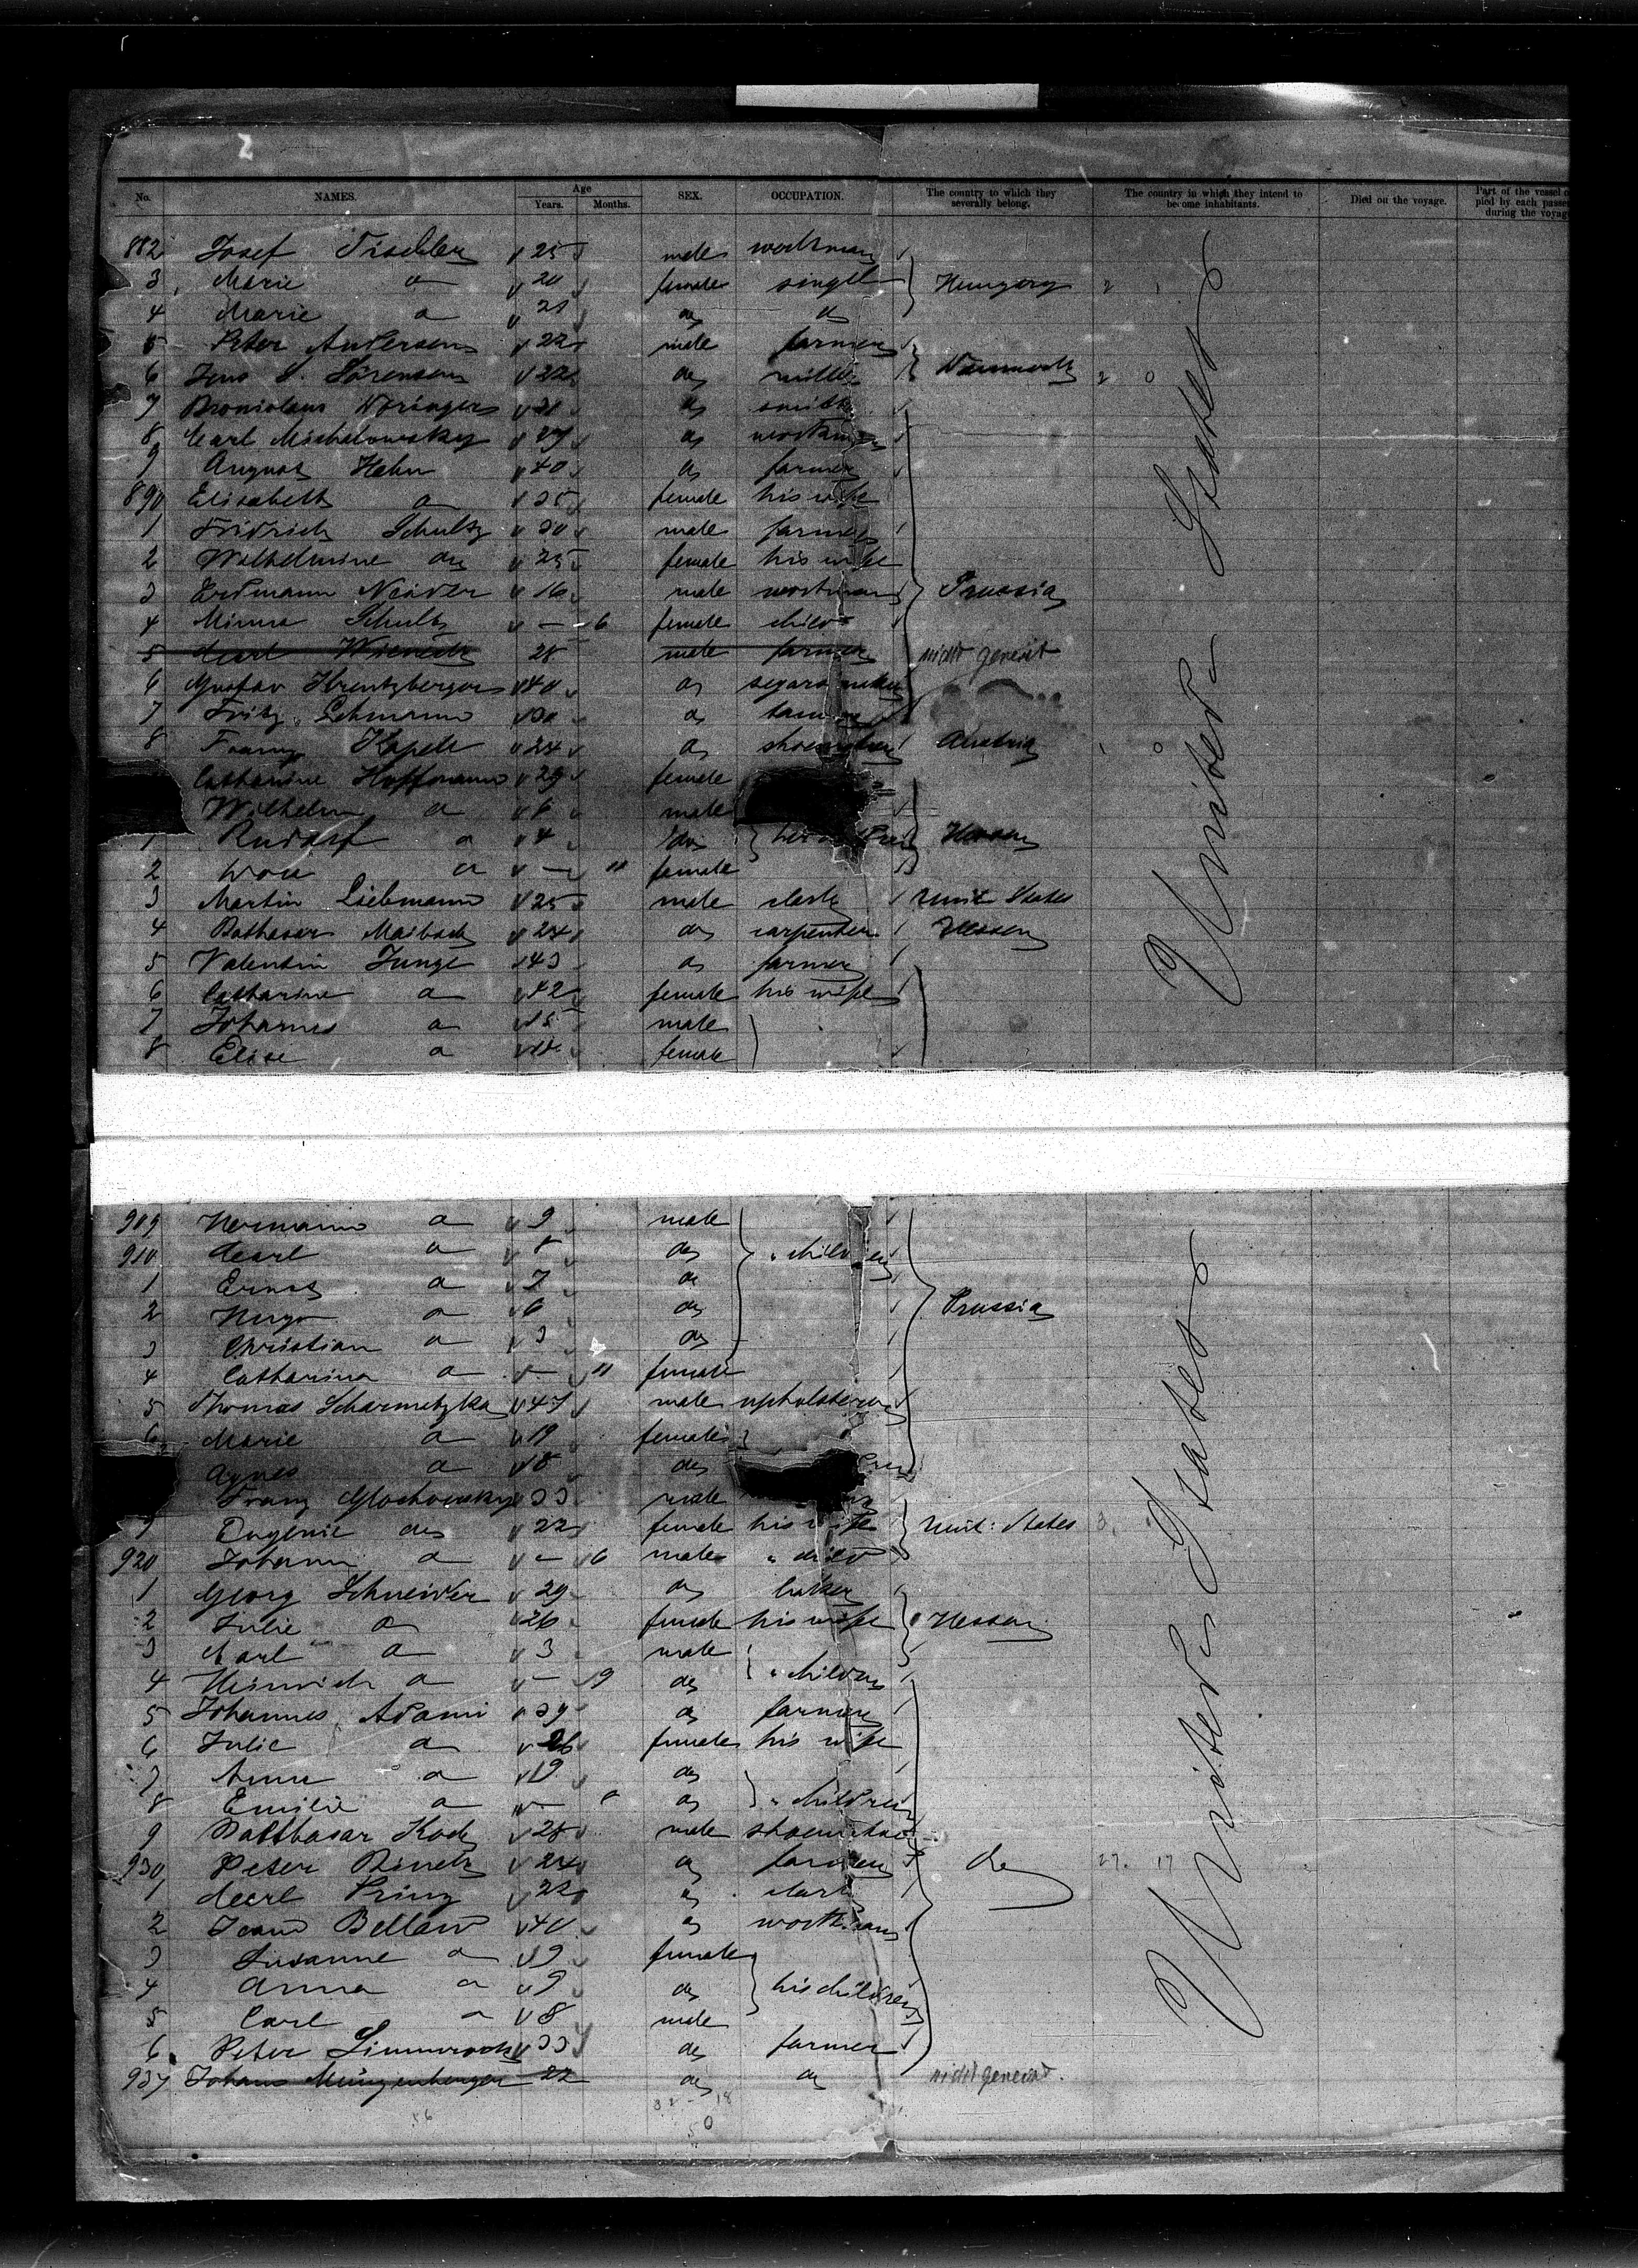 2
No. NAMES. Age Years. Months. SEX. OCCUPATION. The country to which they severally belong. The country in which they intend to become inhabitants. Died on the voyage. Part of the vessel pied by each passe during the voyag
882 Josef Tischler 25 male workman
3 Marie do 20 female single Hungary 2 1
4 Marie do 21 do do
5 Peter Andersen 22 male farmer
6 Jens Sörensen 22 do miller Denmark 2 0
7 Bronislaus do smith
8 Carl Michalowsky 27 do workman
9 August Hahn 40 do farmer
890 Elisabeth do 35 female his wife
1 Fridrich Schultz 30 male farmer
2 Wilhelmine do 25 female his wife
3 Erdmann Neider 16 male workman Prussia
4 Minna Schultz — 6 female child
5 Carl 28 male farmer nicht gereist
6 Gustav Krentzberger 40 do segarmaker
7 Fritz Lehmann 30 do
8 Franz Kapele 24 do shoemaker Austria 1 0
Catharine Hoffmann 29 female
Wilhelm do 6 male
1 Rudolf do 4 do her Hessen
2 do — 11 female
3 Martin Liebmann 25 male clerk Unit States
4 Balthasar Maibach 24 do carpenter Hessen
5 Valentin Junge 43 do farmer
6 Catharine do 42 female his wife
7 Johannes do 15 male
8 Elise do female
United States
909 Hermann do 9 male
910 Carl do 8 do " children
1 Ernst do 7 do
2 Hugo do 6 do Prussia
3 Christian do 3 do
4 Catharina do — 11 female
5 Thomas Scharmetzka 47 male upholsterer
6 Marie do 19 female
Agnes do 18 do
Franz Glochowsky 33 male
9 Eugenie do 22 female his wife Unit: States 3
920 Johann do — 6 male " child
1 Georg Schneider 29 do baker
2 Julie do 26 female his wife Hessen
3 Carl do 3 male
4 Heinrich do — 9 do " children
5 Johannes Adami 39 do farmer
6 Julie do 26 female his wife
7 Anna do 19 do
8 Emilie do — do " children
9 Balthasar Koch 28 male shoemaker
930 Peter 24 do farmer do 27. 17
1 Carl Prinz 22 do clerk
2 Bellaw 40 do workman
3 Susanne do 9 female
4 Anna do 9 do his children
5 Carl do 8 male
6 Peter 33 do farmer
937 Johann Münzenberger 22 do do nicht gereist.
United States
56 32 - 18
50